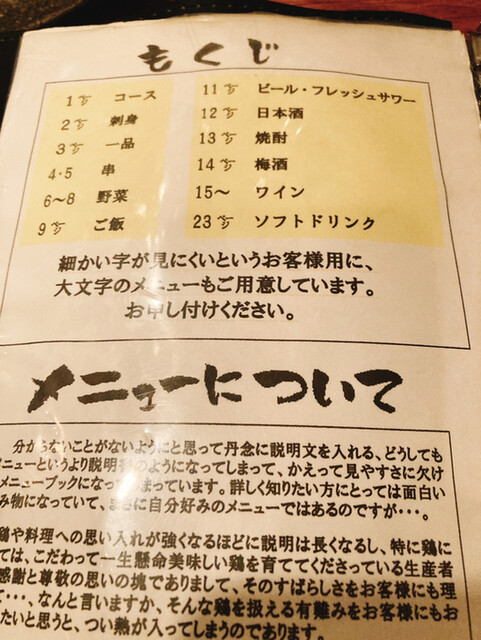 もくじ
1ページ コース
2ページ 刺身
3ページ 一品
4・5 串
6～8 野菜
9ページ ご飯
11ページ ビール・フレッシュサワー
12ページ 日本酒
13ページ 焼酎
14ページ 梅酒
15～ ワイン
23ページ ソフトドリンク
細かい字が見にくいというお客様用に、
大文字のメニューもご用意しています。
お申し付けください。
メニューについて
分からないことがないようにと思って丹念に説明文を入れる、どうしても
ニューというより説明書のようになってしまって、かえって見やすさに欠け
メニューブックになってしまっています。詳しく知りたい方にとっては面白い
み物になっていて、まさに自分好みのメニューではあるのですが・・・。
鶏や料理への思い入れが強くなるほどに説明は長くなるし、特に鶏に
ては、こだわって一生懸命美味しい鶏を育ててくださっている生産者
感謝と尊敬の思いの塊でありまして、そのすばらしさをお客様にも理
て・・・、なんと言いますか、そんな鶏を扱える有難みをお客様にもお
たいと思うと、つい熱が入ってしまうのであります。